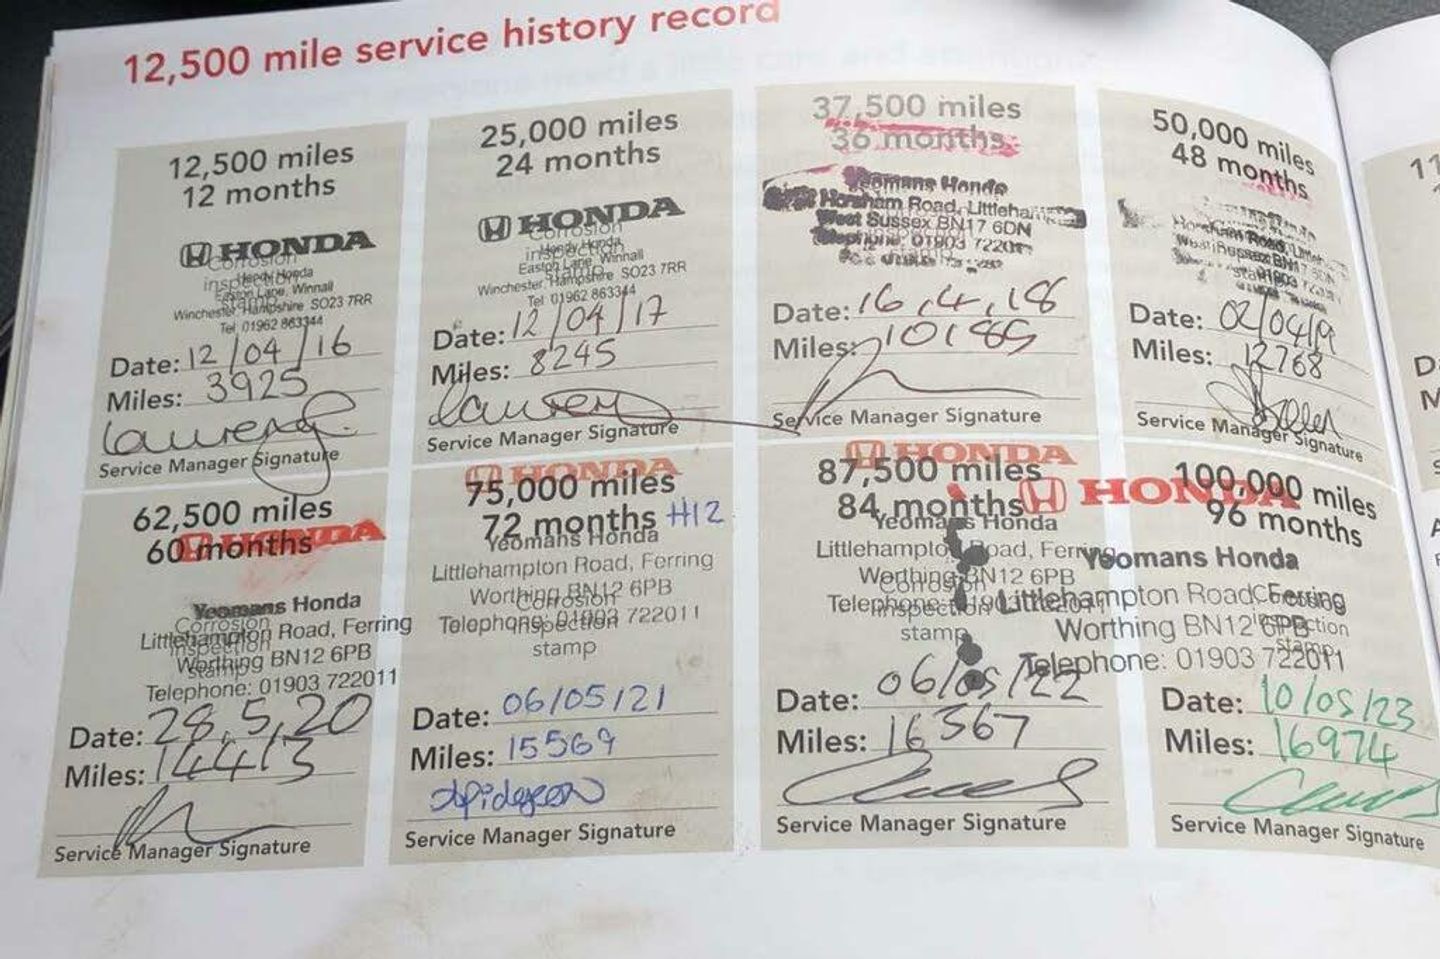 12,500 mile service history record
12,500 miles
12 months
HONDA
Corrosion
inspection
stamp
Hendy Honda
Easton Lane, Winnall
Winchester Hampshire SO23 7RR
Tel 01962 863344
Date: 12/04/16
Miles: 3925
Service Manager Signature
25,000 miles
24 months
HONDA
Corrosion
inspection
stamp
Hendy Honda
Easton Lane, Winnall
Winchester Hampshire SO23 7RR
Tel 01962 863344
Date: 12/04/17
Miles: 8245
Service Manager Signature
37,500 miles
36 months
Yeomans Honda
Horsham Road,
West Sussex BN17 6DN
Date: 16.4.18
Miles: 10189
Service Manager Signature
50,000 miles
48 months
Horsham Road,
Date: 02/04/19
Miles: 12768
Service Manager Signature
11
D
M
62,500 miles
60 months
HONDA
Yeomans Honda
Corrosion
inspection
stamp
Littlehampton Road, Ferring
Worthing BN12 6PB
Telephone: 01903 722011
Date: 28.5.20
Miles: 14413
Service Manager Signature
HONDA
75,000 miles
72 months H12
Yeomans Honda
Littlehampton Road, Ferring
Worthing BN12 6PB
Telephone: 01903 722011
Corrosion
inspection
stamp
Date: 06/05/21
Miles: 15569
Service Manager Signature
HONDA
87,500 miles
84 months
Yeomans Honda
Littlehampton Road, Ferring
Worthing BN12 6PB
Corrosion
inspection
stamp
Date: 06/05/22
Miles: 16367
Service Manager Signature
HONDA
100,000 miles
96 months
Yeomans Honda
Littlehampton Road, Ferring
Worthing BN12 6PB
Telephone: 01903 722011
Corrosion
inspection
stamp
Date: 10/05/23
Miles: 16974
Service Manager Signature